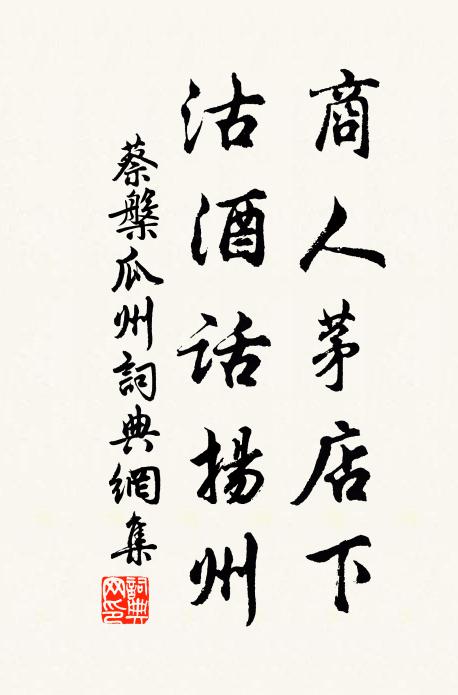 商人茅店下
沽酒話揚州
蔡槃瓜州詞典網集
詞典网印